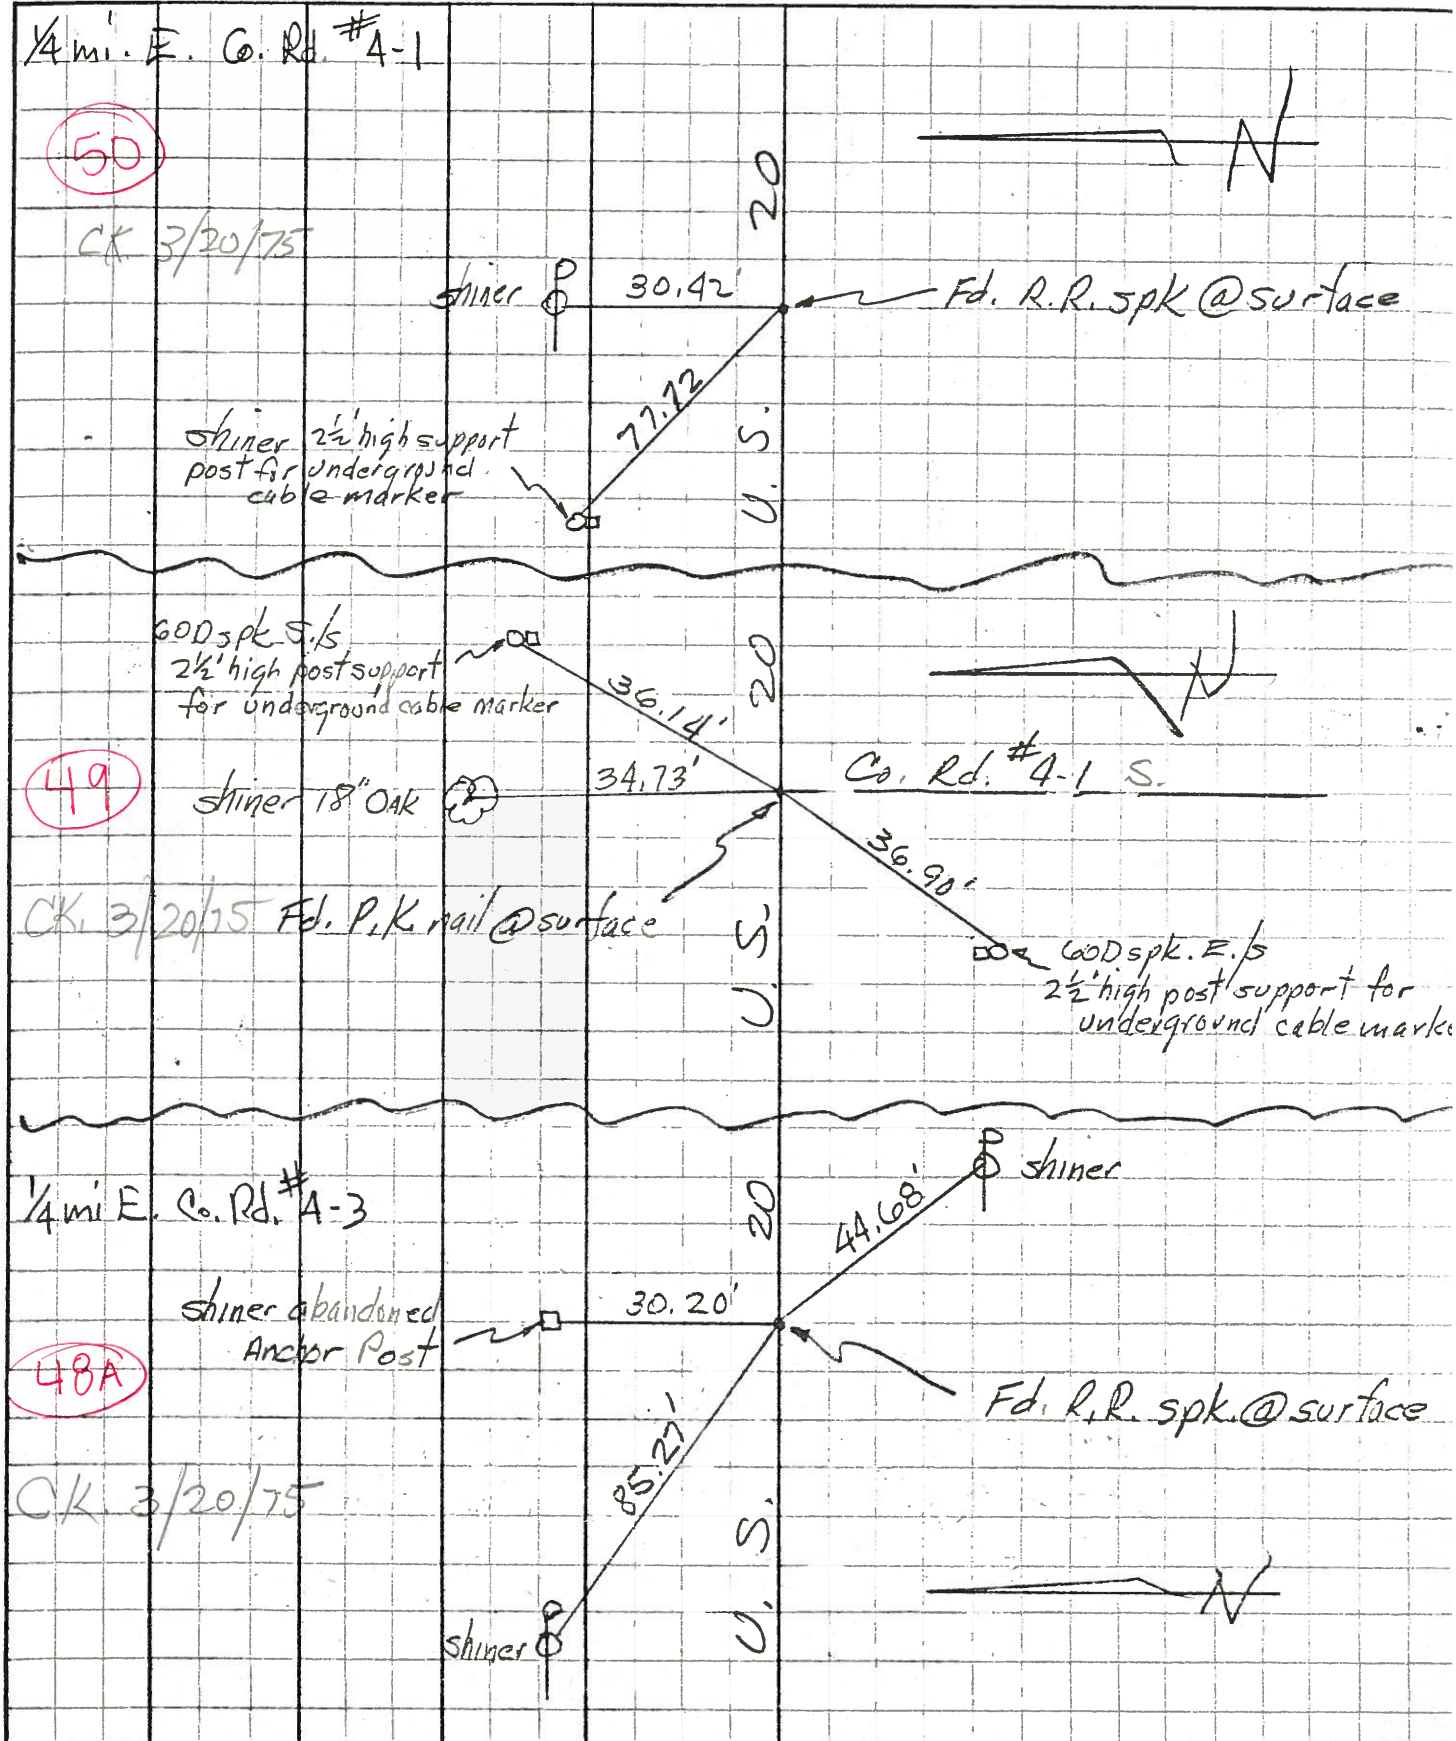 1/4 mi. E. Co. Rd. #4-1
50
N
CK 3/20/75
U. S. 20
shiner
30.42'
Fd. R.R. spk @ surface
77.72
shiner 2½' high support
post for underground
cable marker
60D spk S./s
2½' high post support
for underground cable marker
36.14'
U. S. 20
N
49
shiner 18" OAK
34.73'
Co. Rd. #4-1 S.
36.90'
CK. 3/20/75
Fd. P.K. nail @ surface
60D spk. E./s
2½' high post support for
underground cable marke
1/4 mi E. Co. Rd. #4-3
shiner
44.68'
U. S. 20
shiner abandoned
Anchor Post
30.20'
48A
Fd. R.R. spk. @ surface
85.27'
CK. 3/20/75
shiner
N